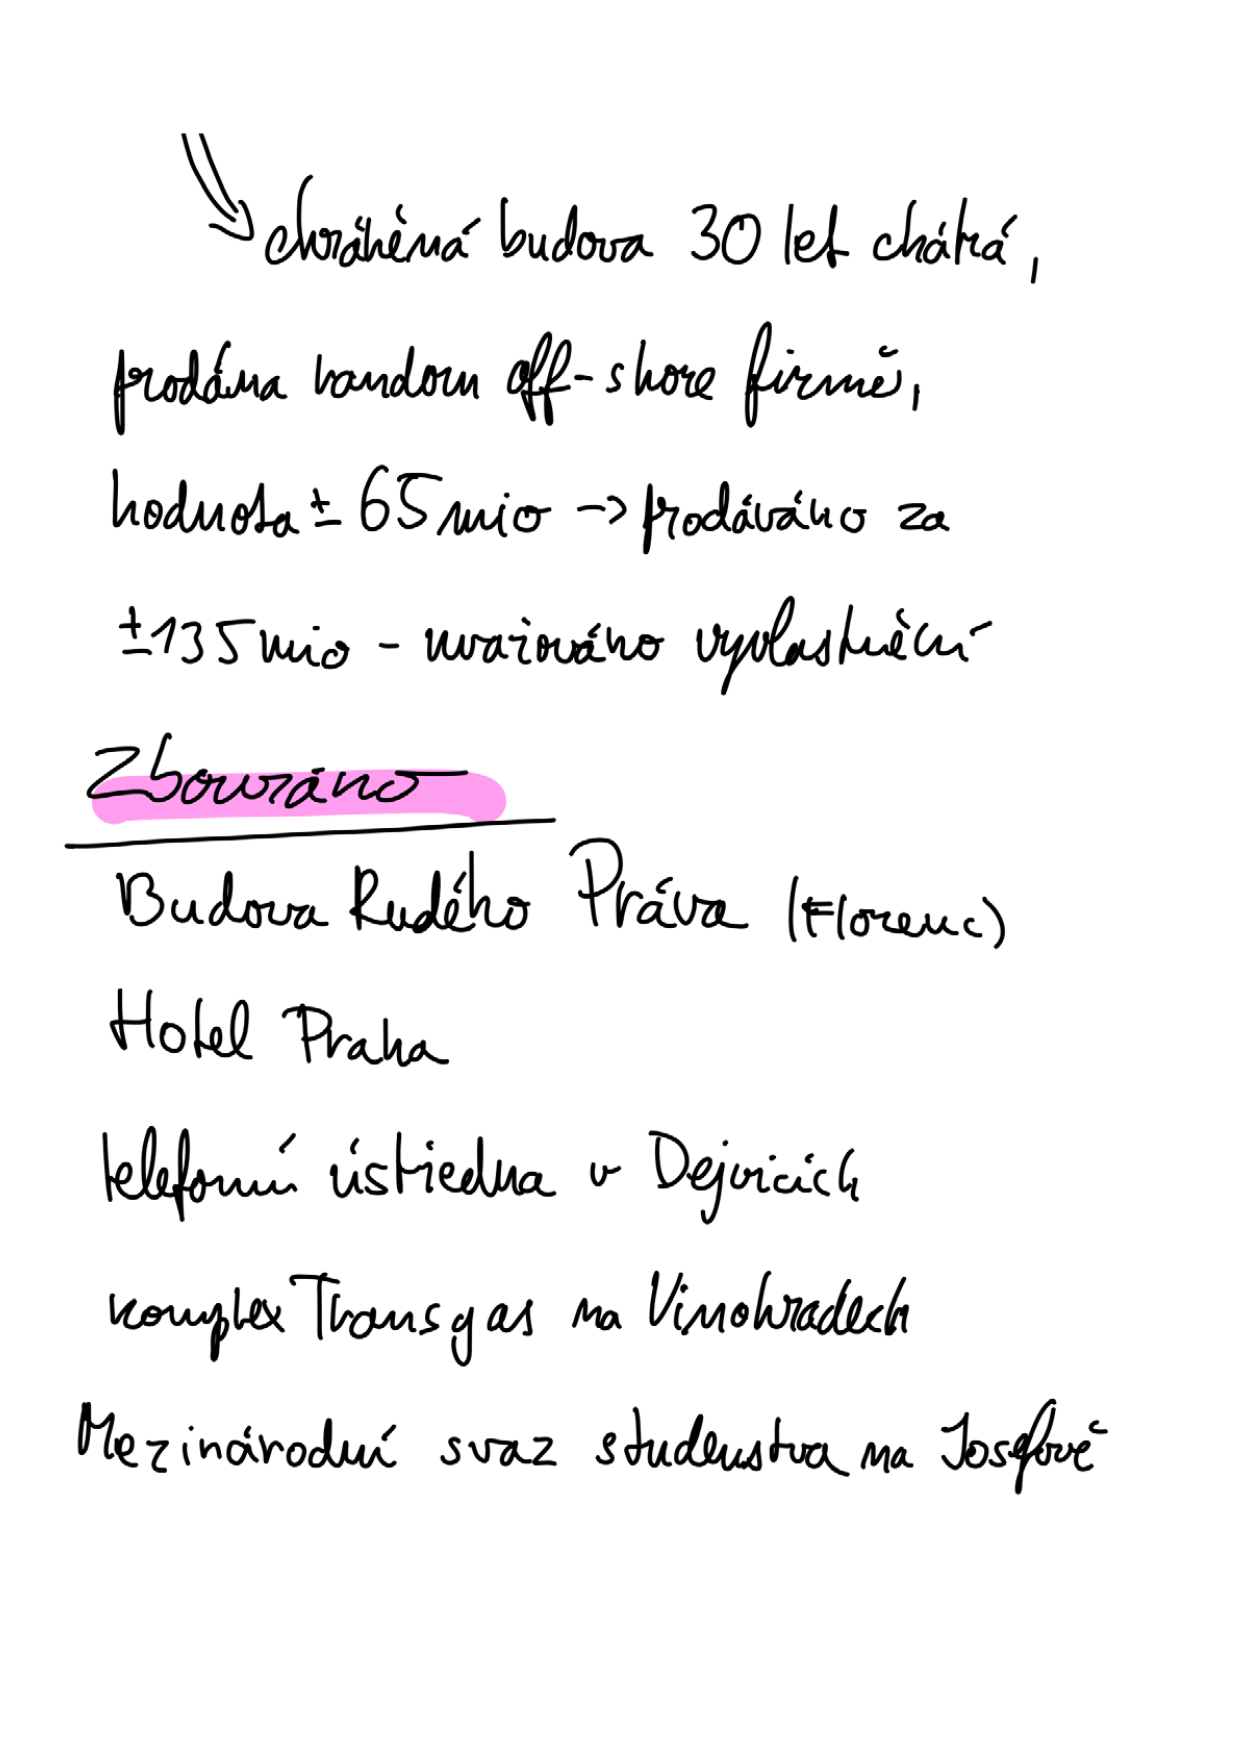 chráněná budova 30 let chátrá,
prodána random off-shore firmě,
hodnota ± 65 mio -> prodáváno za
± 135 mio - uvažováno vyvlastnění
Zbouráno
Budova Rudého Práva (Florenc)
Hotel Praha
telefonní ústředna v Dejvicích
komplex Transgas na Vinohradech
Mezinárodní svaz studenstva na Josefově